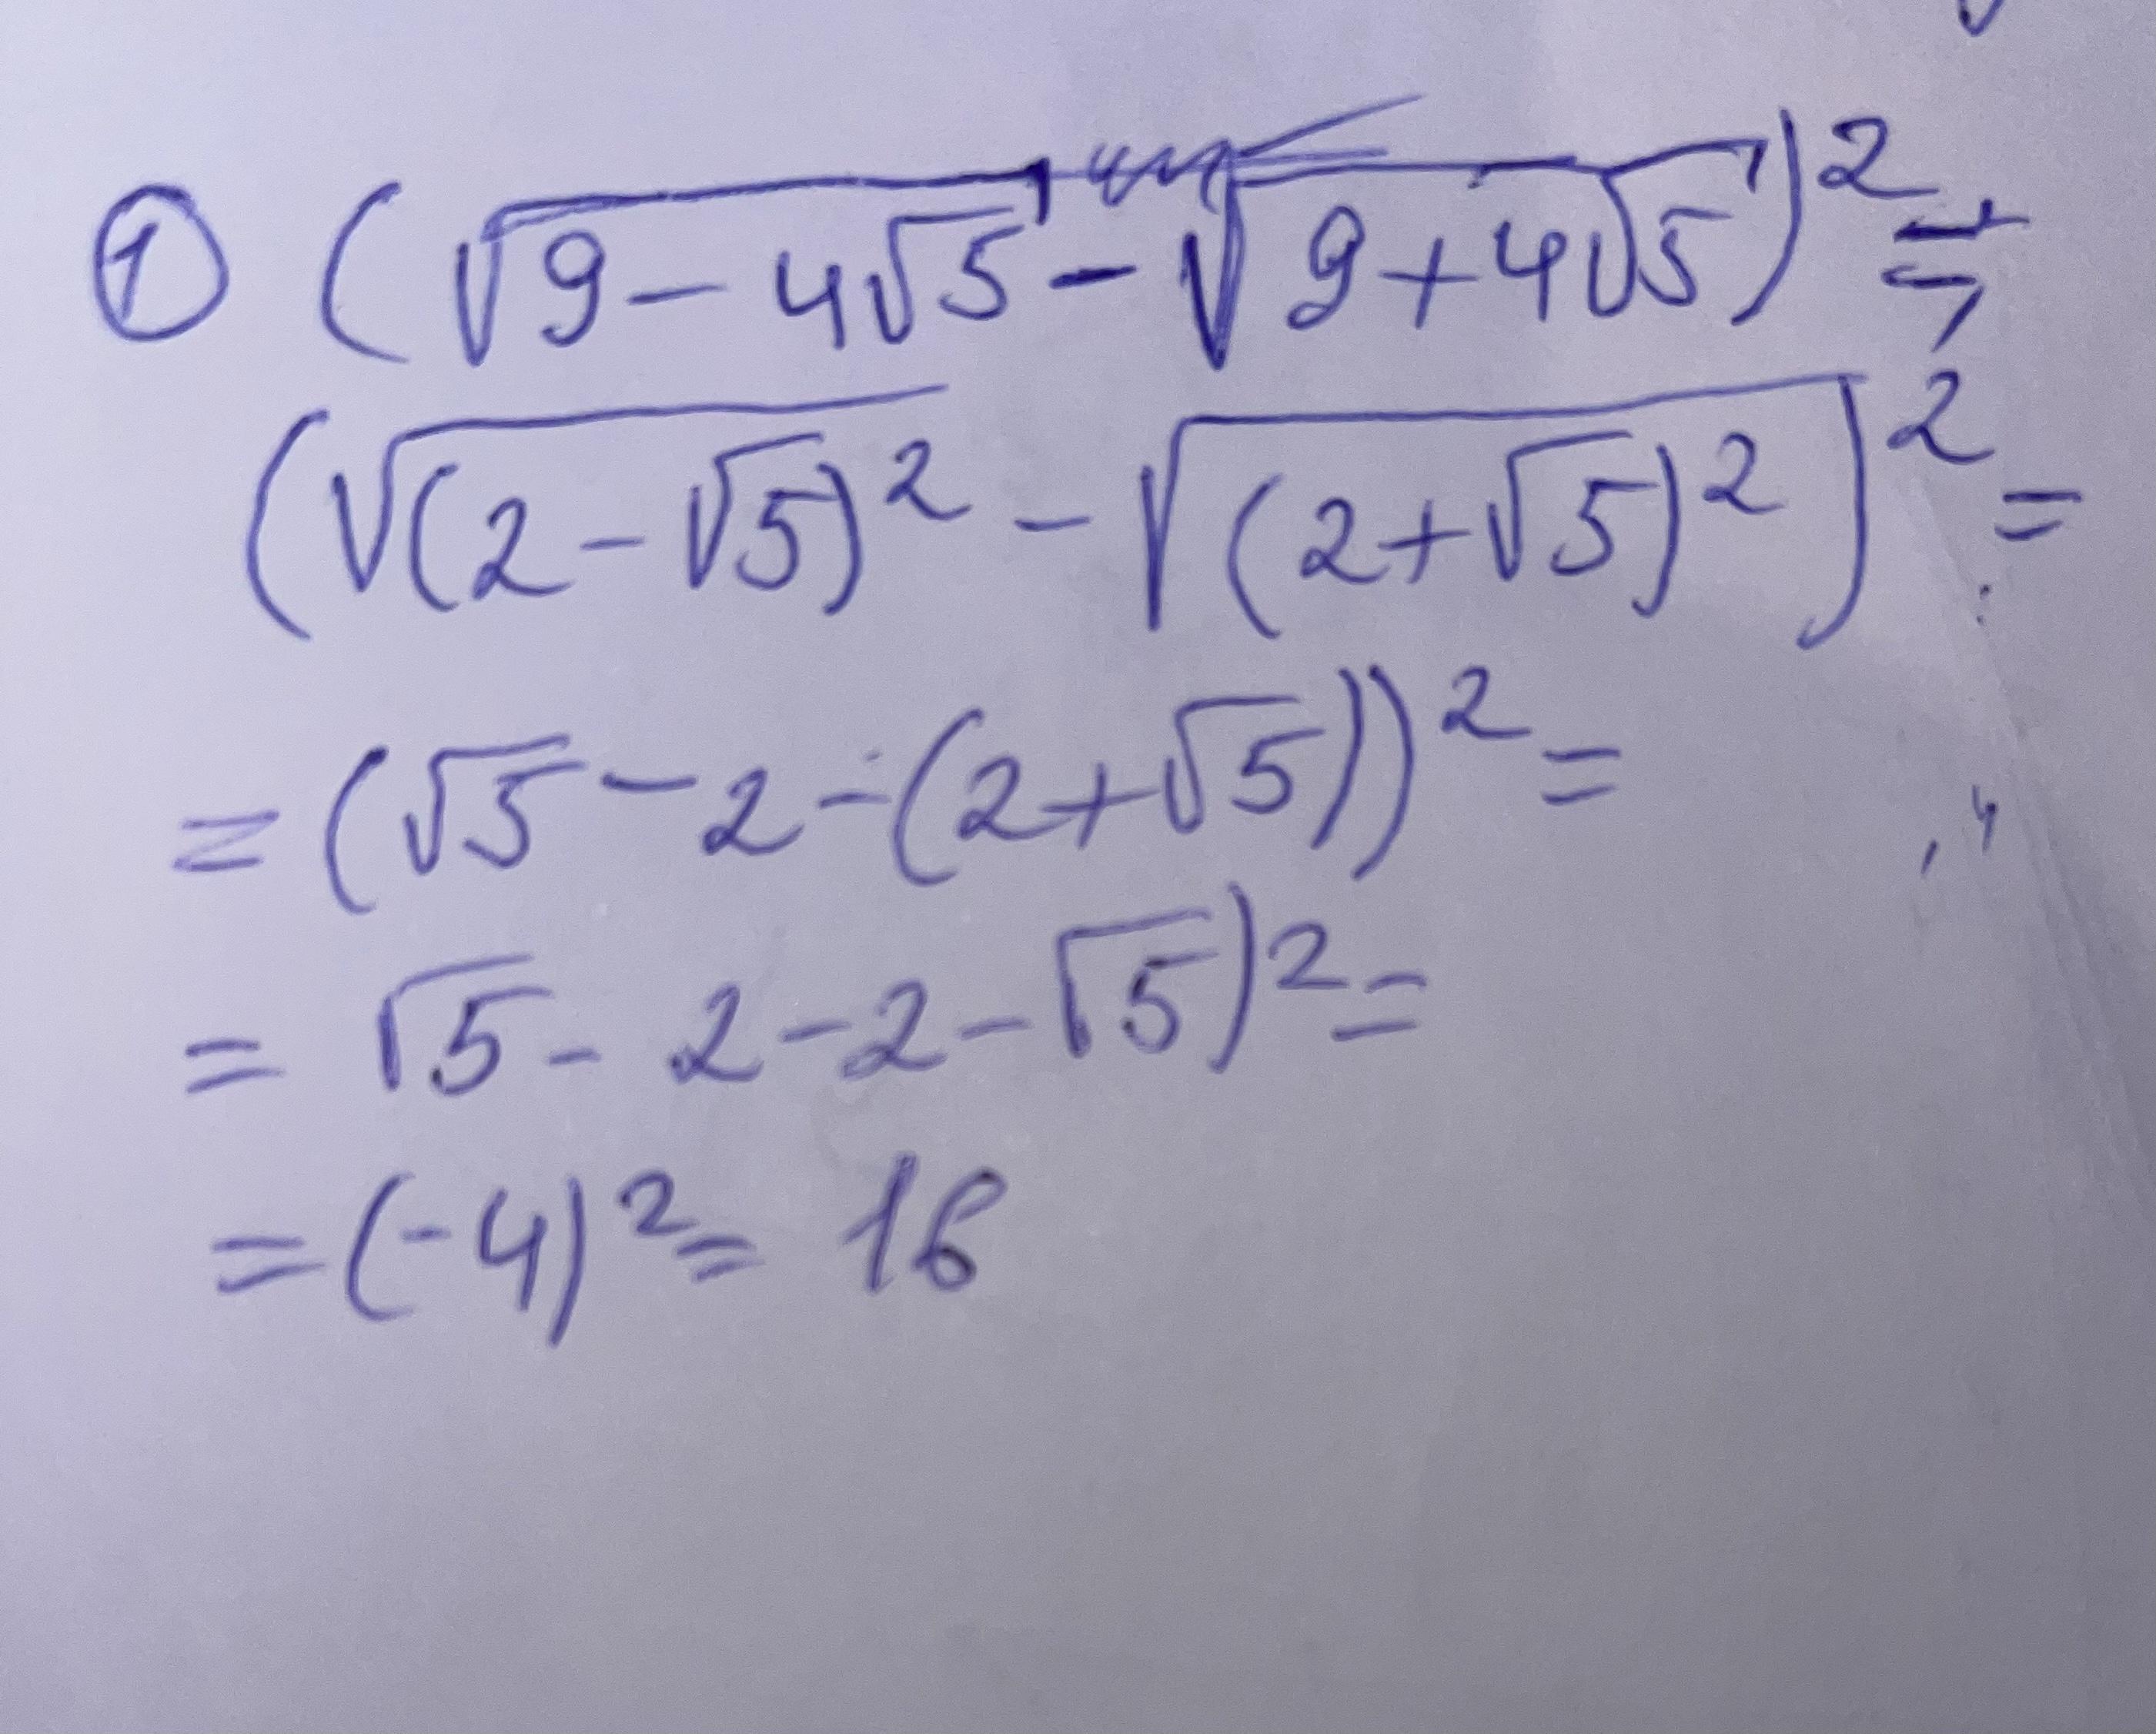 ① (√(9 - 4√5) - √(9 + 4√5))² =
(√((2 - √5)²) - √((2 + √5)²))² =
= (√5 - 2 - (2 + √5))² =
= √5 - 2 - 2 - √5)² =
= (-4)² = 16